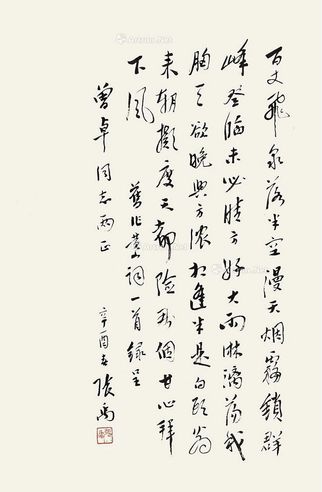 百丈飛泉落半空漫天烟霧鎖群
峰登臨未必晴方好大雨淋漓蕩我
胸天欲晚興方濃相逢半是白頭翁
来朝擬度天都險那個甘心拜
下風 舊作黄山詞一首録呈
曾卓同志兩正
辛酉春 張禹